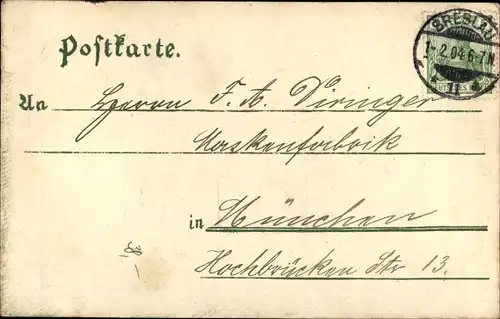 BRESLAU
1 2.04.6-7N
11
Postkarte.
An Herrn F. A. Diringer
Maskenfabrik
in München
Hochbrücken Str 13.